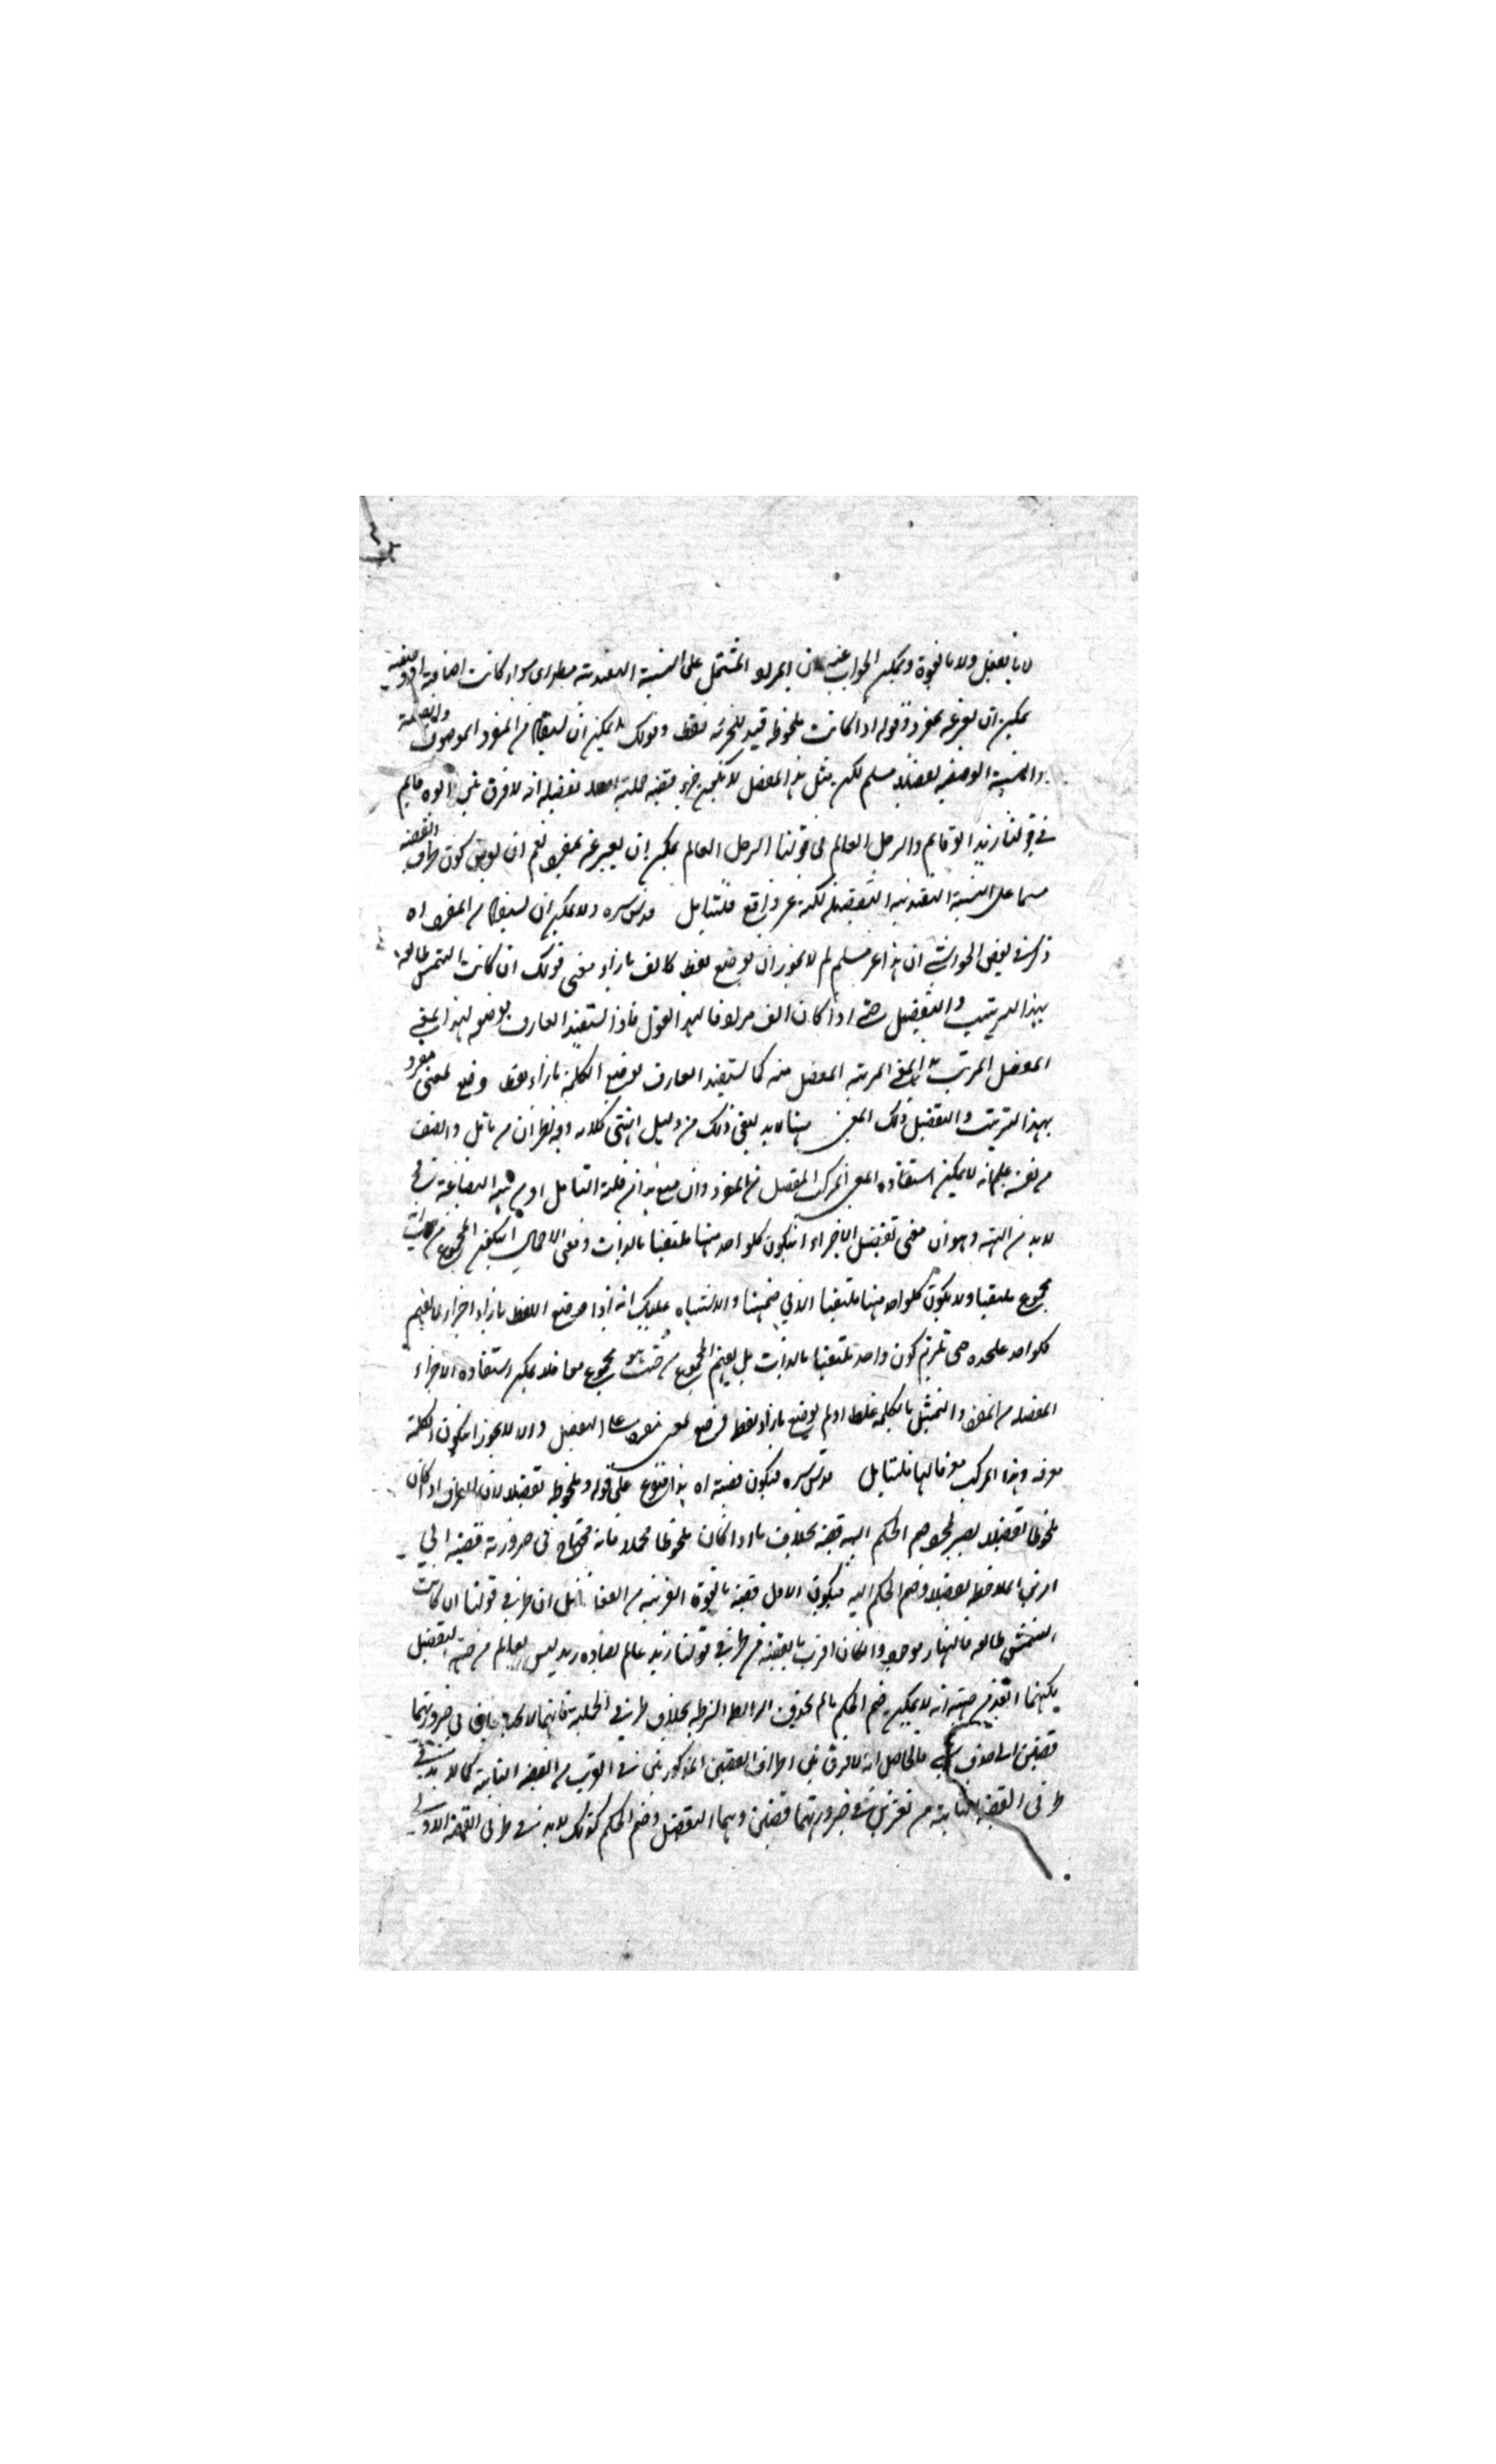 لا بالفعل ولا بالقوة ويمكن الجواب عنه ان المركب المشتمل على النسبة التقييدية سواء كانت اضافية او وصفية
يمكن ان يعبر عنه بمفرد وقوله اذا كانت ملحوظة قيد للجزئية فقط وقولك لا يمكن ان يستفاد من المفرد الموصوف والصفة
والنسبة الوصفية تفصيلا مسلم لكن مثل هذا المفصل لا يكون جزء قضية حملية اصلا تفصيله انه لا فرق بين ابوه قايم
في قولنا زيد ابوه قايم والرجل العالم في قولنا الرجل العالم يمكن ان يعبر عنه بمفرد نعم ان كون طرف القضية
مشتملا على النسبة التقييدية التفصيلية لكنه غير واقع فليتامل قدس سره ولا يمكن ان يستفاد من المفرد اه
ذكر في بعض الحواشي ان هذا غير مسلم لم لا يجوز ان يوضع لفظ كالف بازاء معنى قولك ان كانت الشمس طالعة
بهذا الترتيب والتفصيل حتى اذا كان الف مرادفا لهذا القول فاذا يستفيد العارف بوضعه لهذا المعنى
المفصل المرتب المعنى المرتب المفصل منه كما يستفيد العارف بوضع الكلمة بازاء لفظ وضع لمعنى مفرد
بهذا الترتيب والتفصيل ذلك المعنى منها لا بد لنفي ذلك من دليل انتهى كلامه وفيه نظر لان من تامل وانصف
من نفسه علم انه لا يمكن استفادة المعنى المركب المفصل من المفرد وان منع هذا من قلة التامل او من
لا بد من التنبه وهو ان معنى تفصيل الاجزاء ان يكون كل واحد منها ملتفتا بالذات ومعنى الاجمال ان يكون المجموع من حيث
مجموع ملتفتا ولا يكون كل واحد منها ملتفتا الا في ضمنها والاشتباه عليك انه اذا وضع اللفظ بازاء اجزاء لا يفهم
كل واحد علحده حتى يلزم كون واحد ملتفتا بالذات بل يفهم المجموع من حيث هو مجموع معا فلا يمكن استفادة الاجزاء
المفصلة من المفرد والتمثيل بالكلمة غلط اذ لم يوضع بازاء لفظ وضع لمعنى مفرد على التفصيل والا لا يجوز ان يكون الكلمة
معرفة وهذا المركب معرفا لها فليتامل قدس سره فيكون قضية اه هذا متفرع على قوله وملحوظة تفصيلا لان الطرف اذا كان
ملحوظا تفصيلا يصير بمجرد ضم الحكم اليه قضية بخلاف ما اذا كان ملحوظا مجملا فانه محتاج في صيرورته قضية الى
امرين الملاحظة تفصيلا وضم الحكم اليه فيكون الاول قضية بالقوة القريبة من الفعل ان طرفي قولنا ان كانت
الشمس طالعة فالنهار موجود وان كان اقرب بالقضية من طرفي قولنا زيد عالم يضاده زيد ليس بعالم من جهة التفصيل
لكنهما ابعد من جهة انه لا يمكن ضم الحكم ما لم يحذف الرابطة الشرطية بخلاف طرفي الحملية فانهما لا يحتاجان في صيرورتهما
قضيتين الى حذف شيء فالحاصل انه لا فرق بين اطراف القضيتين المذكورتين في القرب من القضية الثانية كما لا بد في
طرفي القضية الثانية من تغيرين في صيرورتهما قضيتين وهما التفصيل وضم الحكم كذلك لا بد في طرفي القضية الاولى